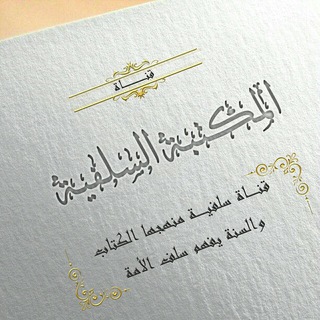 قناة
المكتبة السلفية
قناة سلفية منهجها الكتاب
والسنة بفهم سلف الأمة